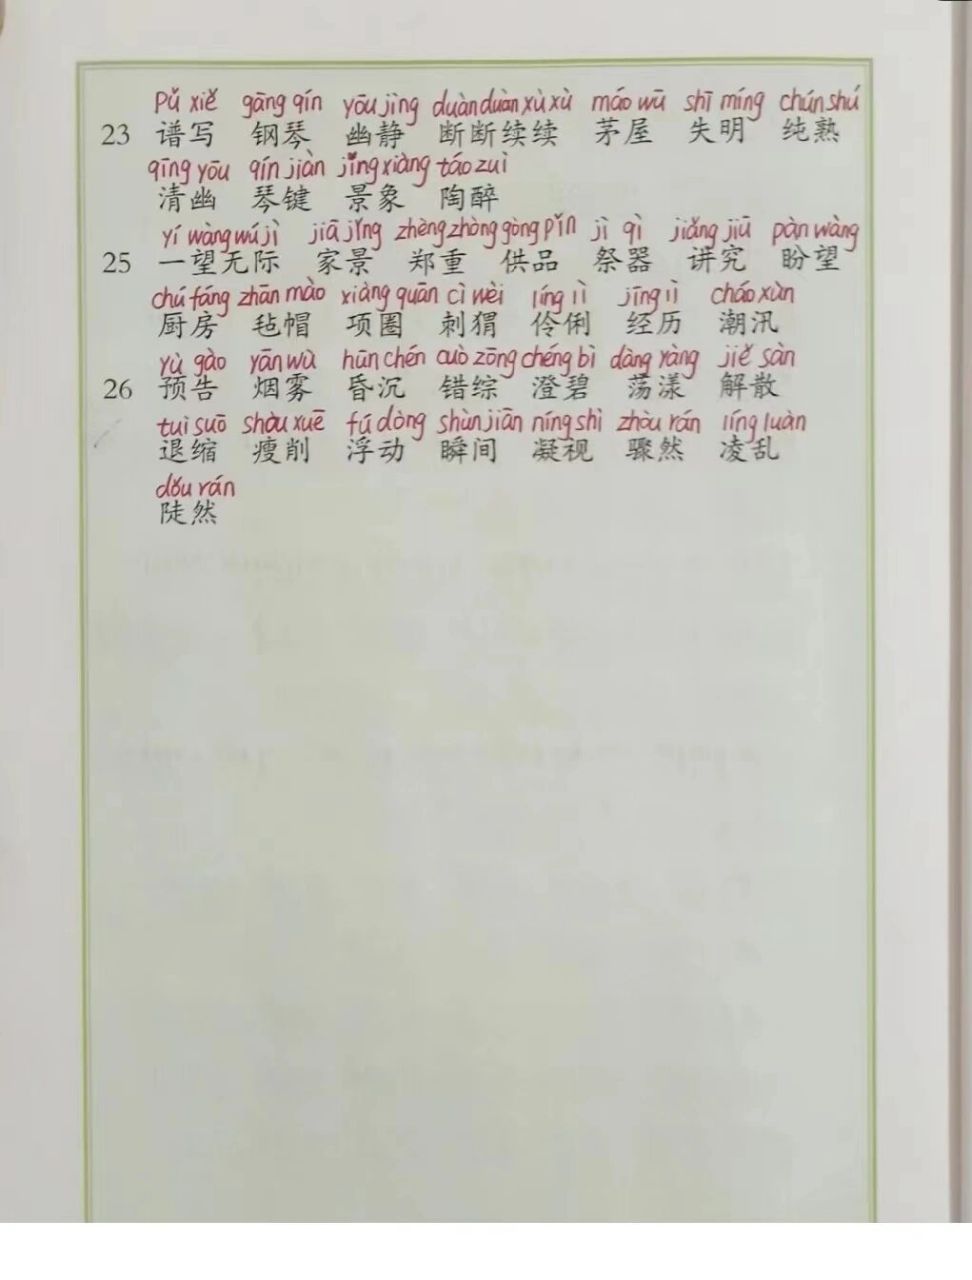 pǔ xiě gāng qín yōu jìng duàn duàn xù xù máo wū shī míng chún shú
23 谱写 钢琴 幽静 断断续续 茅屋 失明 纯熟
qīng yōu qín jiàn jǐng xiàng táo zuì
清幽 琴键 景象 陶醉
yí wàng wú jì jiā jǐng zhèng zhòng gòng pǐn jì qì jiǎng jiū pàn wàng
25 一望无际 家景 郑重 供品 祭器 讲究 盼望
chú fáng zhān mào xiàng quān cì wèi líng lì jīng lì cháo xùn
厨房 毡帽 项圈 刺猬 伶俐 经历 潮汛
yù gào yān wù hūn chén cuò zōng chéng bì dàng yàng jiě sàn
26 预告 烟雾 昏沉 错综 澄碧 荡漾 解散
tuì suō shòu xuē fú dòng shùn jiān níng shì zhòu rán líng luàn
退缩 瘦削 浮动 瞬间 凝视 骤然 凌乱
dǒu rán
陡然